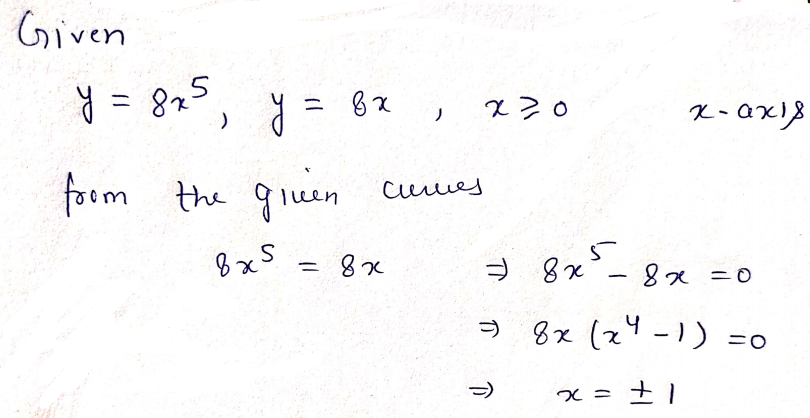 Given
y = 8x⁵, y = 8x, x ≥ 0 x-axis
from the given curves
8x⁵ = 8x ⇒ 8x⁵ - 8x = 0
⇒ 8x (x⁴ - 1) = 0
⇒ x = ± 1